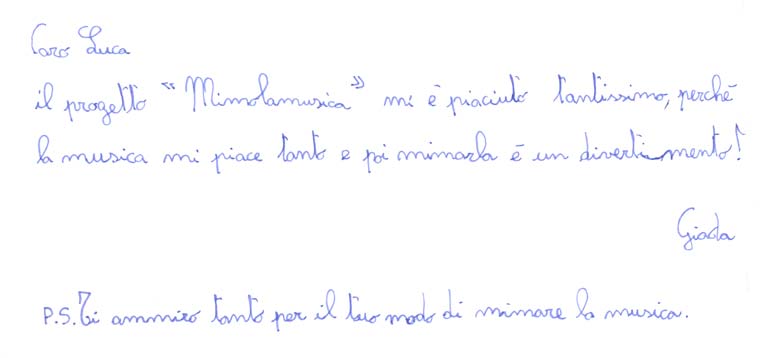 Caro Luca
il progetto "Mimolamusica" mi è piaciuto tantissimo, perché
la musica mi piace tanto e poi mimarla è un divertimento!
Giada
P.S. Ti ammiro tanto per il tuo modo di mimare la musica.